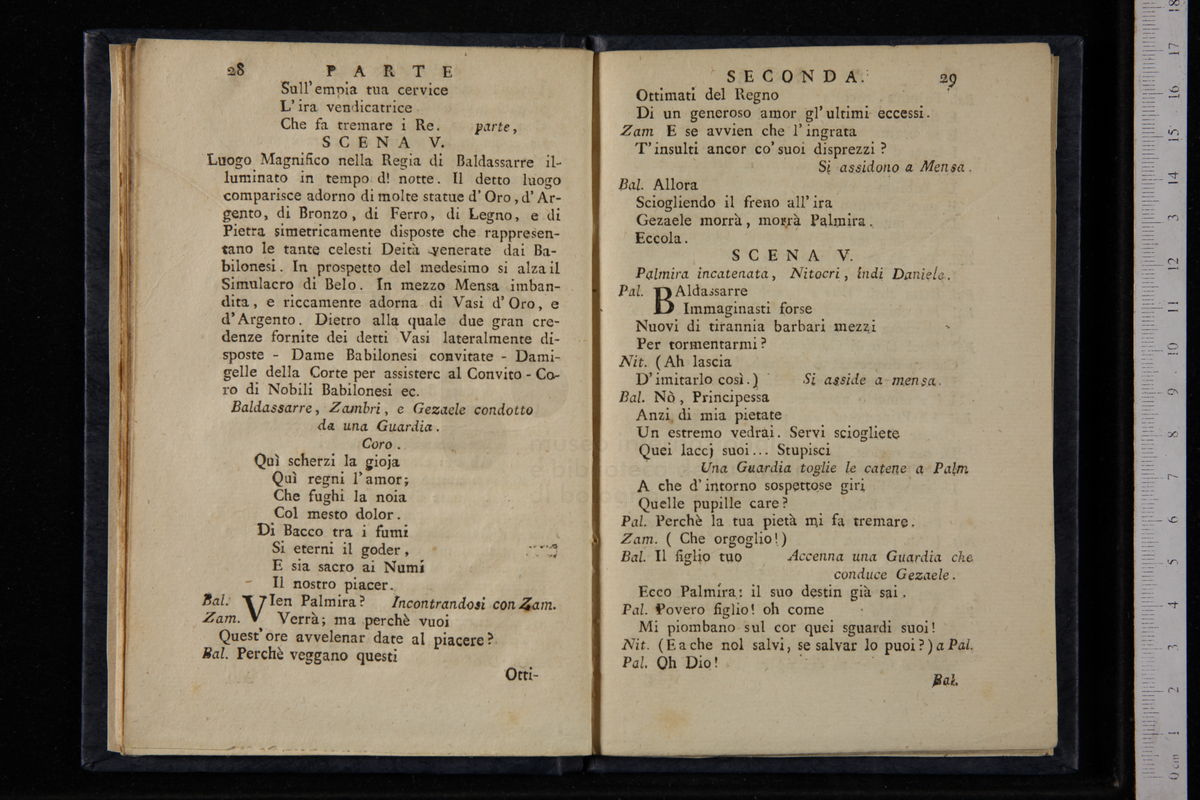 28 PARTE
Sull' empia tua cervice
L' ira vendicatrice
Che fa tremare i Re. parte,
SCENA V.
Luogo Magnifico nella Regia di Baldassarre il-
luminato in tempo d! notte. Il detto luogo
comparisce adorno di molte statue d' Oro, d' Ar-
gento, di Bronzo, di Ferro, di Legno, e di
Pietra simetricamente disposte che rappresen-
tano le tante celesti Deità venerate dai Ba-
bilonesi. In prospetto del medesimo si alza il
Simulacro di Belo. In mezzo Mensa imban-
dita, e riccamente adorna di Vasi d' Oro, e
d' Argento. Dietro alla quale due gran cre-
denze fornite dei detti Vasi lateralmente di-
sposte - Dame Babilonesi convitate - Dami-
gelle della Corte per assistere al Convito - Co-
ro di Nobili Babilonesi ec.
Baldassarre, Zambri, e Gezaele condotto
da una Guardia.
Coro.
Quì scherzi la gioja
Quì regni l' amor;
Che fughi la noia
Col mesto dolor.
Di Bacco tra i fumi
Si eterni il goder,
E sia sacro ai Numi
Il nostro piacer.
Bal. VIen Palmira? Incontrandosi con Zam.
Zam. Verrà; ma perchè vuoi
Quest' ore avvelenar date al piacere?
Bal. Perchè veggano questi
Otti-
SECONDA. 29
Ottimati del Regno
Di un generoso amor gl' ultimi eccessi.
Zam E se avvien che l' ingrata
T' insulti ancor co' suoi disprezzi?
Si assidono a Mensa.
Bal. Allora
Sciogliendo il freno all' ira
Gezaele morrà, morrà Palmira.
Eccola.
SCENA V.
Palmira incatenata, Nitocri, indi Daniele.
Pal. BAldassarre
Immaginasti forse
Nuovi di tirannia barbari mezzi
Per tormentarmi?
Nit. (Ah lascia
D' imitarlo così.) Si asside a mensa.
Bal. Nò, Principessa
Anzi di mia pietate
Un estremo vedrai. Servi sciogliete
Quei laccj suoi... Stupisci
Una Guardia toglie le catene a Palm
A che d' intorno sospettose giri
Quelle pupille care?
Pal. Perchè la tua pietà mi fa tremare.
Zam. ( Che orgoglio!)
Bal. Il figlio tuo Accenna una Guardia che
conduce Gezaele.
Ecco Palmira: il suo destin già sai.
Pal. Povero figlio! oh come
Mi piombano sul cor quei sguardi suoi!
Nit. (E a che nol salvi, se salvar lo puoi?) a Pal.
Pal. Oh Dio!
Bal.